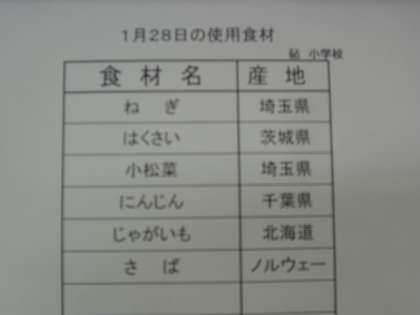 1月28日の使用食材
砧 小学校
食材名 産地
ねぎ 埼玉県
はくさい 茨城県
小松菜 埼玉県
にんじん 千葉県
じゃがいも 北海道
さば ノルウェー